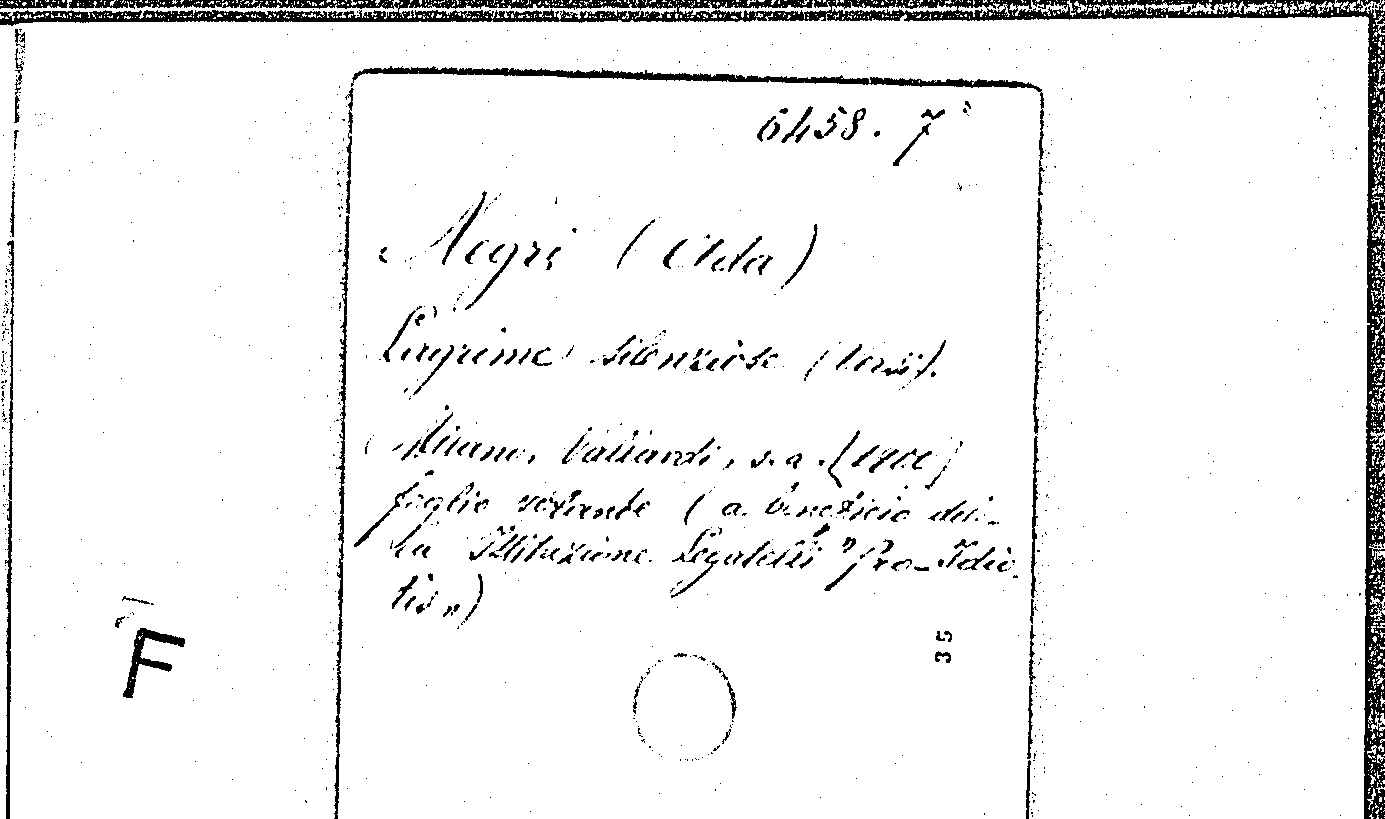 6458. 7
Negri (Ada)
Lagrime silenziose (Versi).
Milano, Vallardi, s. a. (1900)
foglio volante (a beneficio del-
la Istituzione "Pro-Idio-
tis")
35
F